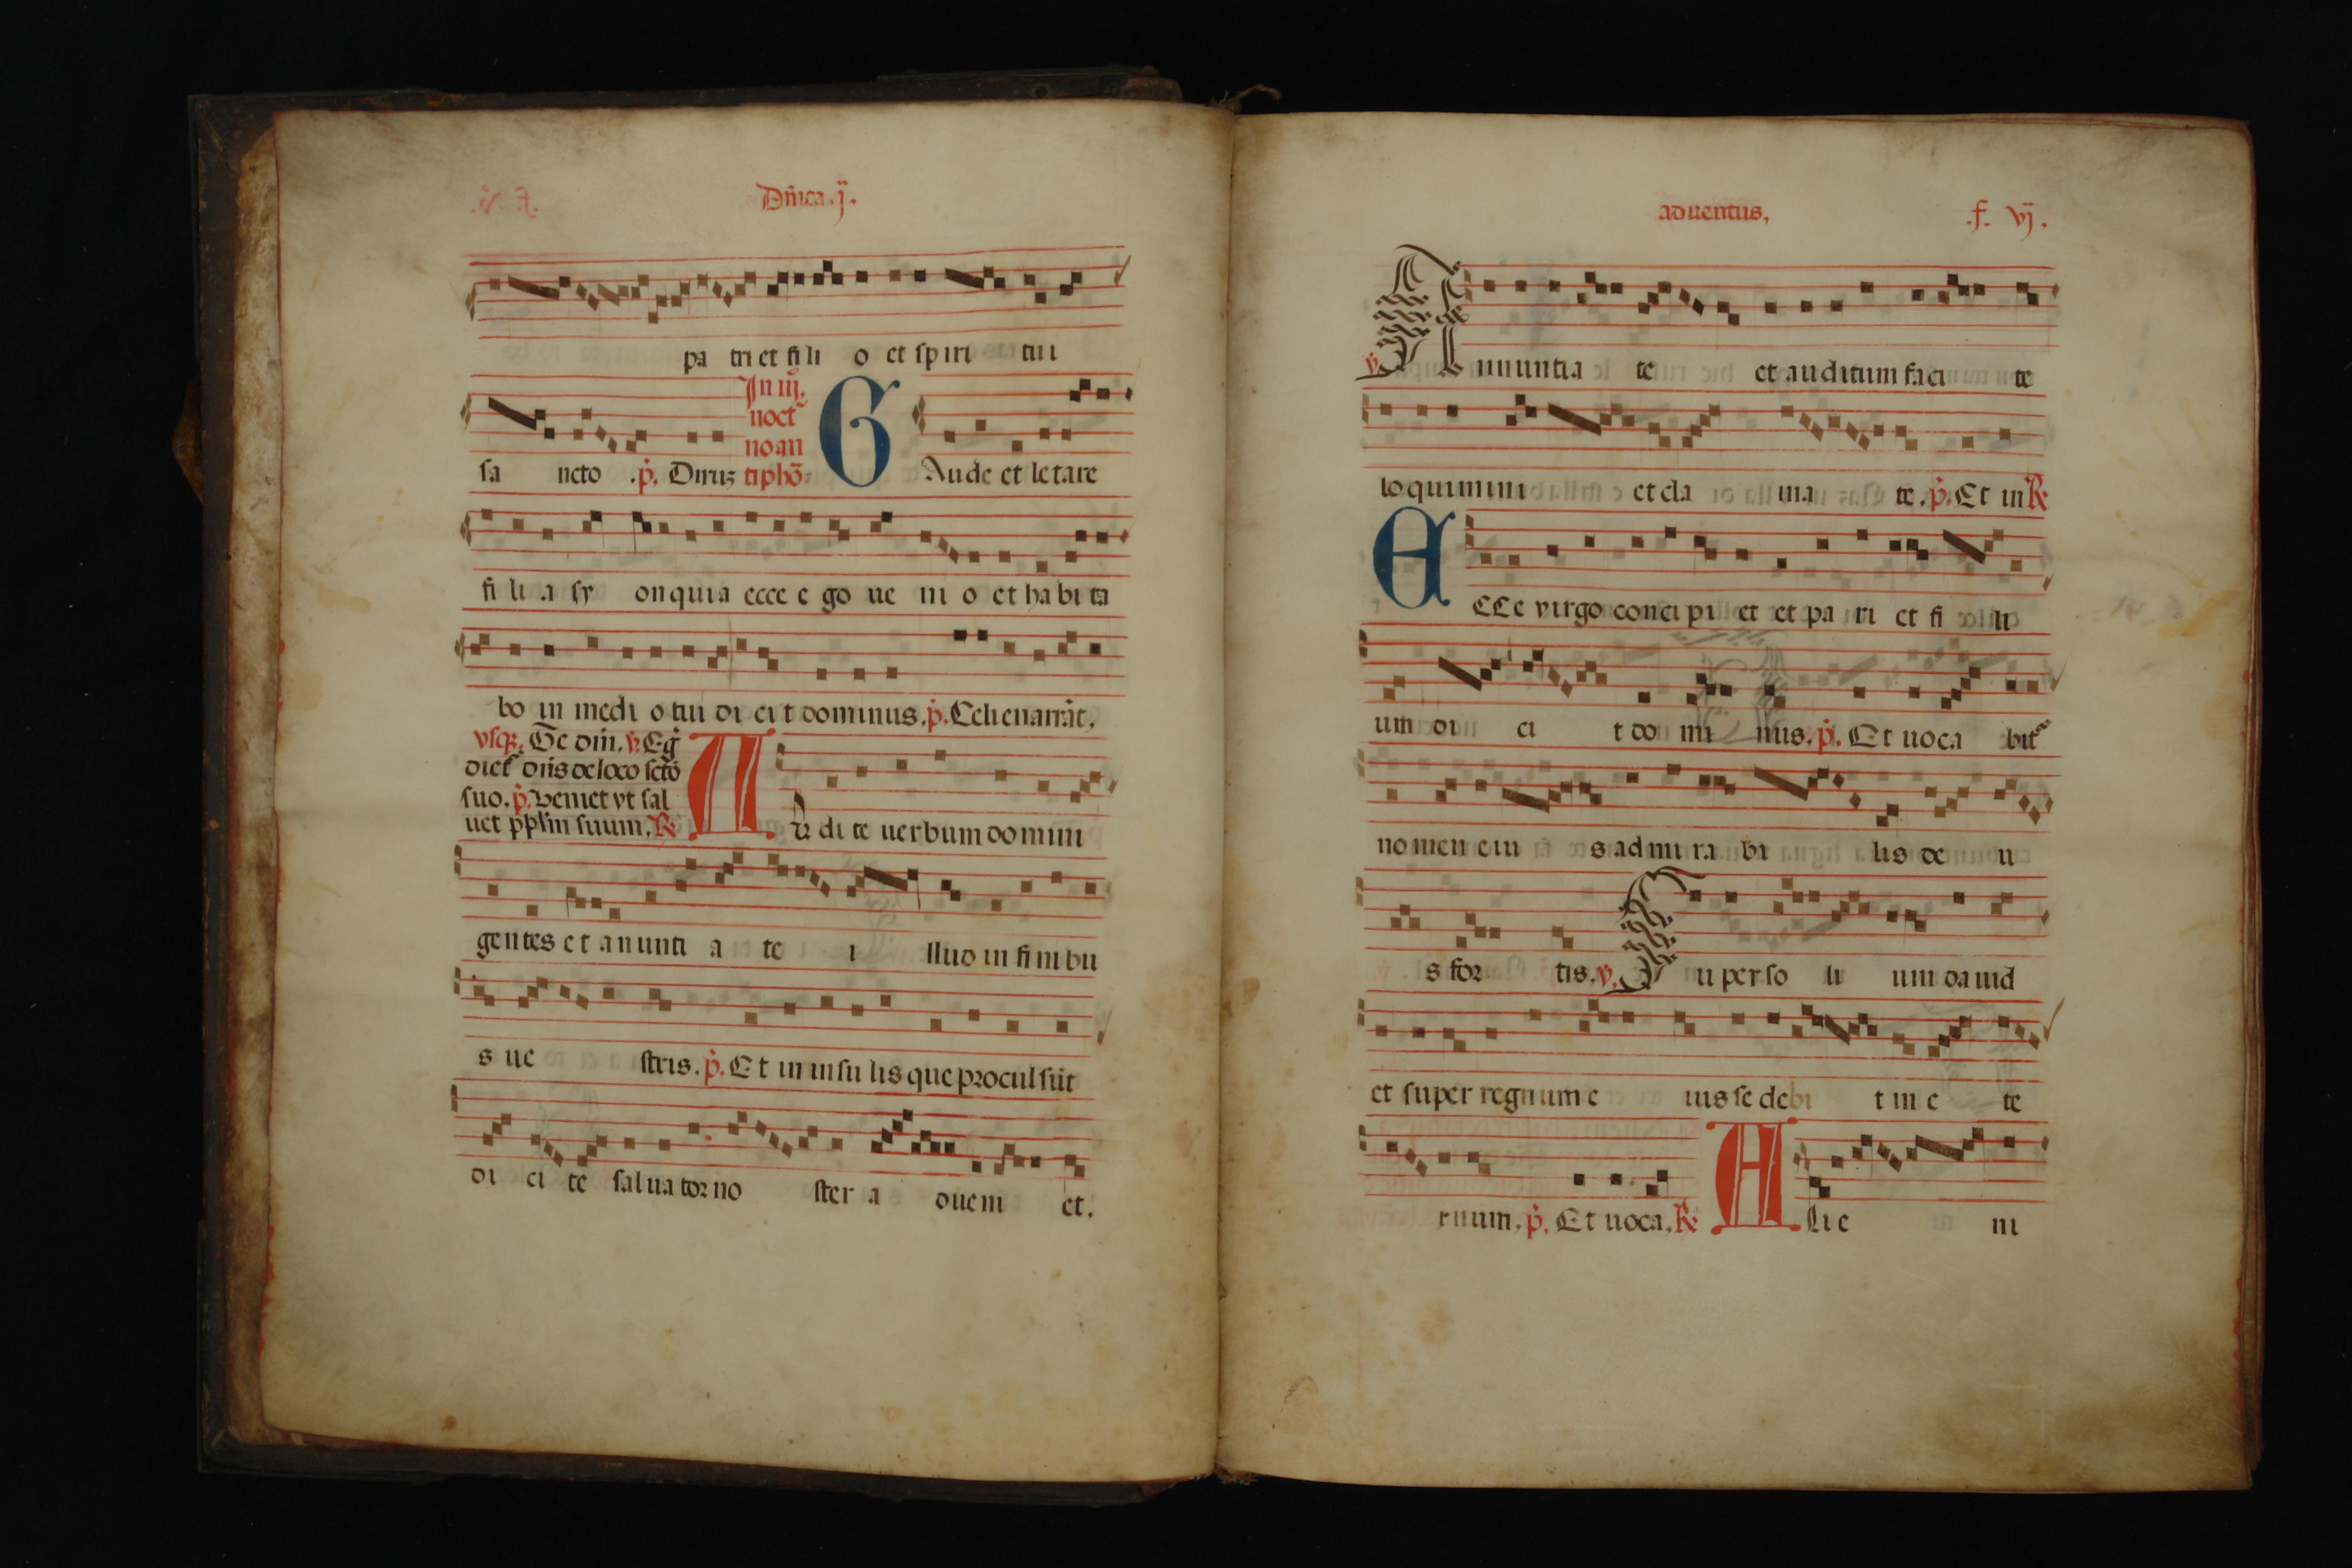 Dñica .ij.
pa tri et fi li o et spiri tui
sa ncto .p̃. Diuiz
In iij.
noct
no an
tiphõ
G Aude et letare
fi li a sy on quia ecce e go ue ni o et ha bi ta
bo in medi o tui di ci t dominus. p̃. Celi enarrãt.
vsq. Te dñi. v. Eg
diet dñs de loco scto
suo. p̃. Veniet vt sal
uet pplm suum, R
A u di te uerbum domini
gentes et anunti a te i llud in fi ni bu
s ue stris. p̃. Et in insu lis que procul sũt
di ci te saluator no ster a duem et.
aduentus,
.f. vj.
v. A nnuntia te et auditum faci te
loquimini et cla ma te. p̃. Et in R
E CCe virgo conci pi et et pa ri et fi li
um di ci t do mi nus. p̃. Et uoca bit
nomen eiu s ad mi ra bi lis de u
s for tis. v. S u per so li um dauid
et super regnum e ius se debi t in e te
rnum. p̃. Et uoca. R A lie ni